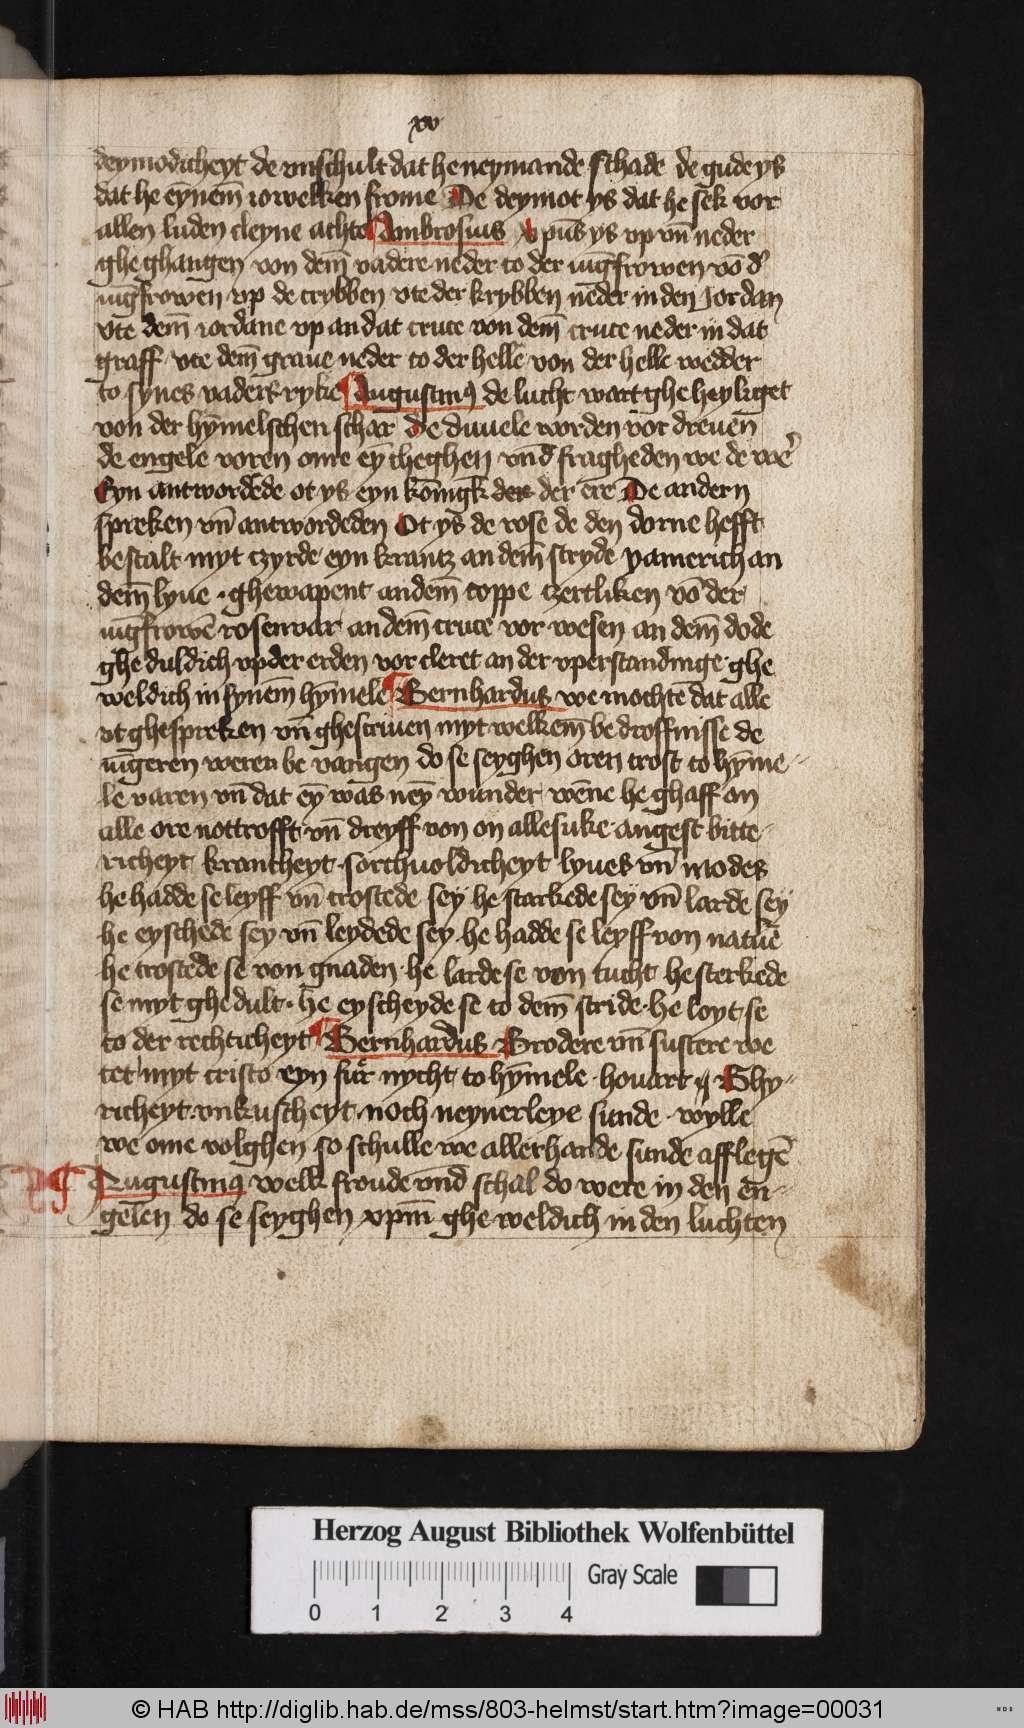 xv
deymodicheyt de vnschult dat he neymande schade de gude ys
dat he eynem̄ iowelken frome De deymot ys dat he sek vor
allen luden cleyne achte Ambrosius Xpūs ys vp vn̄ neder
ghe ghangen von dem̄ vadere neder to der iūgfrowen vō d'
iūgfrowen vp de crybben vte der krybben neder in den Jordan
vte dem̄ iordane vp an dat cruce von dem̄ cruce neder in dat
graff vte dem̄ graue neder to der helle von der helle wedder
to synes vaders ryke Augustinꝯ de lucht wart ghe heyliget
von der hȳmelschen schar De duuele worden vor dreuen
de engele voren ome eȳ theghen vnd fragheden we de we'
Eyn antwordede ot ys eyn konīgk der der ere De andern
spreken vn̄ antwordeden Ot ys de rose de den dorne hefft
bestalt myt czyrde eyn krantz an dem̄ stryde yamerich an
dem̄ lyue · ghewapent an dem̄ coppe czertliken vō der
iūgfrowē rosenvar an dem̄ cruce vor wesen an dem̄ dode
ghe duldich vp der erden vor cleret an der vperstandinge ghe
weldich in synem̄ hȳmele Bernhardus we mochte dat alle
vt ghespreken vn̄ ghescriuen myt welkem̄ bedroffnisse de
iūgeren weren be vangen do se seyghen oren trost to hȳme
le varen vn̄ dat eȳ was neȳ wunder wēne he ghaff on
alle ore nottrofft vn̄ dreyff von on alle suke angest bitte
richeyt krancheyt sorchuoldicheyt lyues vn̄ modes
he hadde se leyff vn̄ trostede sey he starkede sey vn̄ larde sey
he eyschede sey vn̄ leydede sey he hadde se leyff von natuē
he trostede se von gnaden he larde se von tucht he sterkede
se myt ghe dult · he eyscheyde se to dem̄ stride he loyt se
to der rechticheyt Bernhardus Brodere vn̄ sustere we
tet myt cristo eyn fur nycht to hȳmele houart Ghy
richeyt vnkuscheyt noch neynerleye sunde wylle
we ome volghen so schulle we allerhande sunde afflegē
Augustinꝯ welk froude vnd schal do were in den en
gelen do se seyghen xpm̄ ghe weldich in den luchten
Herzog August Bibliothek Wolfenbüttel
Gray Scale
0 1 2 3 4
© HAB http://diglib.hab.de/mss/803-helmst/start.htm?image=00031